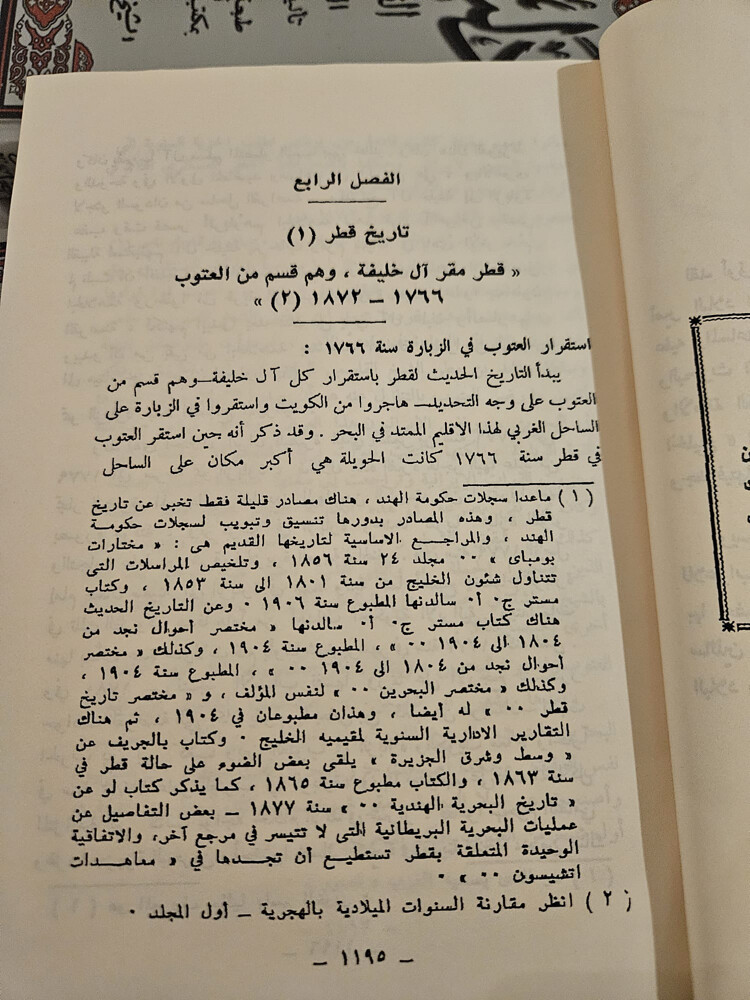 الفصل الرابع
تاريخ قطر (١)
« قطر مقر آل خليفة ، وهم قسم من العتوب
١٧٦٦ – ١٨٧٢ (٢) »
استقرار العتوب في الزبارة سنة ١٧٦٦ :
يبدأ التاريخ الحديث لقطر باستقرار كل آل خليفة – وهم قسم من
العتوب على وجه التحديد – هاجروا من الكويت واستقروا في الزبارة على
الساحل الغربي لهذا الاقليم الممتد في البحر . وقد ذكر أنه حين استقر العتوب
في قطر سنة ١٧٦٦ كانت الحويلة هي أكبر مكان على الساحل
(١) ماعدا سجلات حكومة الهند ، هناك مصادر قليلة فقط تخبر عن تاريخ
قطر ، وهذه المصادر بدورها تنسيق وتبويب لسجلات حكومة
الهند ، والمراجع الاساسية لتاريخها القديم هى : « مختارات
بومباى » ٠٠ مجلد ٢٤ سنة ١٨٥٦ ، وتلخيص المراسلات التى
تتناول شئون الخليج من سنة ١٨٠١ الى سنة ١٨٥٣ ، وكتاب
مستر ج٠ أ٠ سالدنها المطبوع سنة ١٩٠٦ ٠ وعن التاريخ الحديث
هناك كتاب مستر ج٠ أ٠ سالدنها « مختصر أحوال نجد من
١٨٠٤ الى ١٩٠٤ ٠٠ » ، المطبوع سنة ١٩٠٤ ، وكذلك « مختصر
أحوال نجد من ١٨٠٤ الى ١٩٠٤ ٠٠ » ، المطبوع سنة ١٩٠٤ ،
وكذلك « مختصر البحرين ٠٠ » لنفس المؤلف ، و « مختصر تاريخ
قطر ٠٠ » له أيضا ، وهذان مطبوعان في ١٩٠٤ ، ثم هناك
التقارير الادارية السنوية لمقيميه الخليج ٠ وكتاب بالجريف عن
« وسط وشرق الجزيرة » يلقى بعض الضوء على حالة قطر في
سنة ١٨٦٣ ، والكتاب مطبوع سنة ١٨٦٥ ، كما يذكر كتاب لو عن
« تاريخ البحرية الهندية ٠٠ » سنة ١٨٧٧ – بعض التفاصيل عن
عمليات البحرية البريطانية التى لا تتيسر في مرجع آخر، والاتفاقية
الوحيدة المتعلقة بقطر تستطيع أن تجدها في « معاهدات
اتشيسون ٠٠ » ٠
(٢) انظر مقارنة السنوات الميلادية بالهجرية – أول المجلد ٠
– ١١٩٥ –